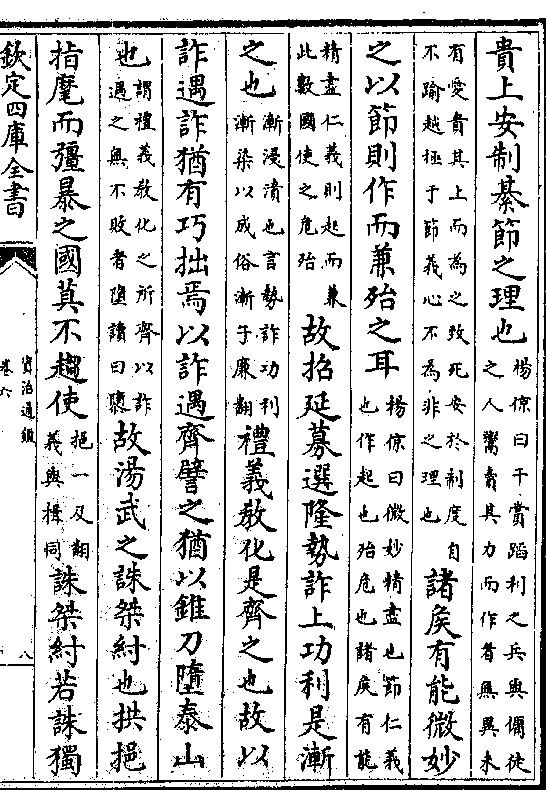 貴上安制綦節之理也楊倞曰干賞蹈利之兵與傭徒之人鬻賣其力而作者無異未
有愛貴其上而為之致死安於制度自不踰越極于節義心不為非之理也諸侯有能微妙
之以節則作而兼殆之耳楊倞曰微妙精盡也節仁義也作起也殆危也諸侯有能
精盡仁義則起而兼此數國使之危殆故招延募選隆勢詐上功利是漸
之也漸浸漬也言勢詐功利漸染以成俗漸子廉翻禮義敎化是齊之也故以
詐遇詐猶有巧拙焉以詐遇齊譬之猶以錐刀墮泰山
也謂禮義敎化之所齊以詐遇之無不敗者墮讀曰隳故湯武之誅桀紂也拱挹
指麾而彊暴之國莫不趨使挹一及翻義與揖同誅桀紂若誅獨
欽定四庫全書
資治通鑑
卷六
八